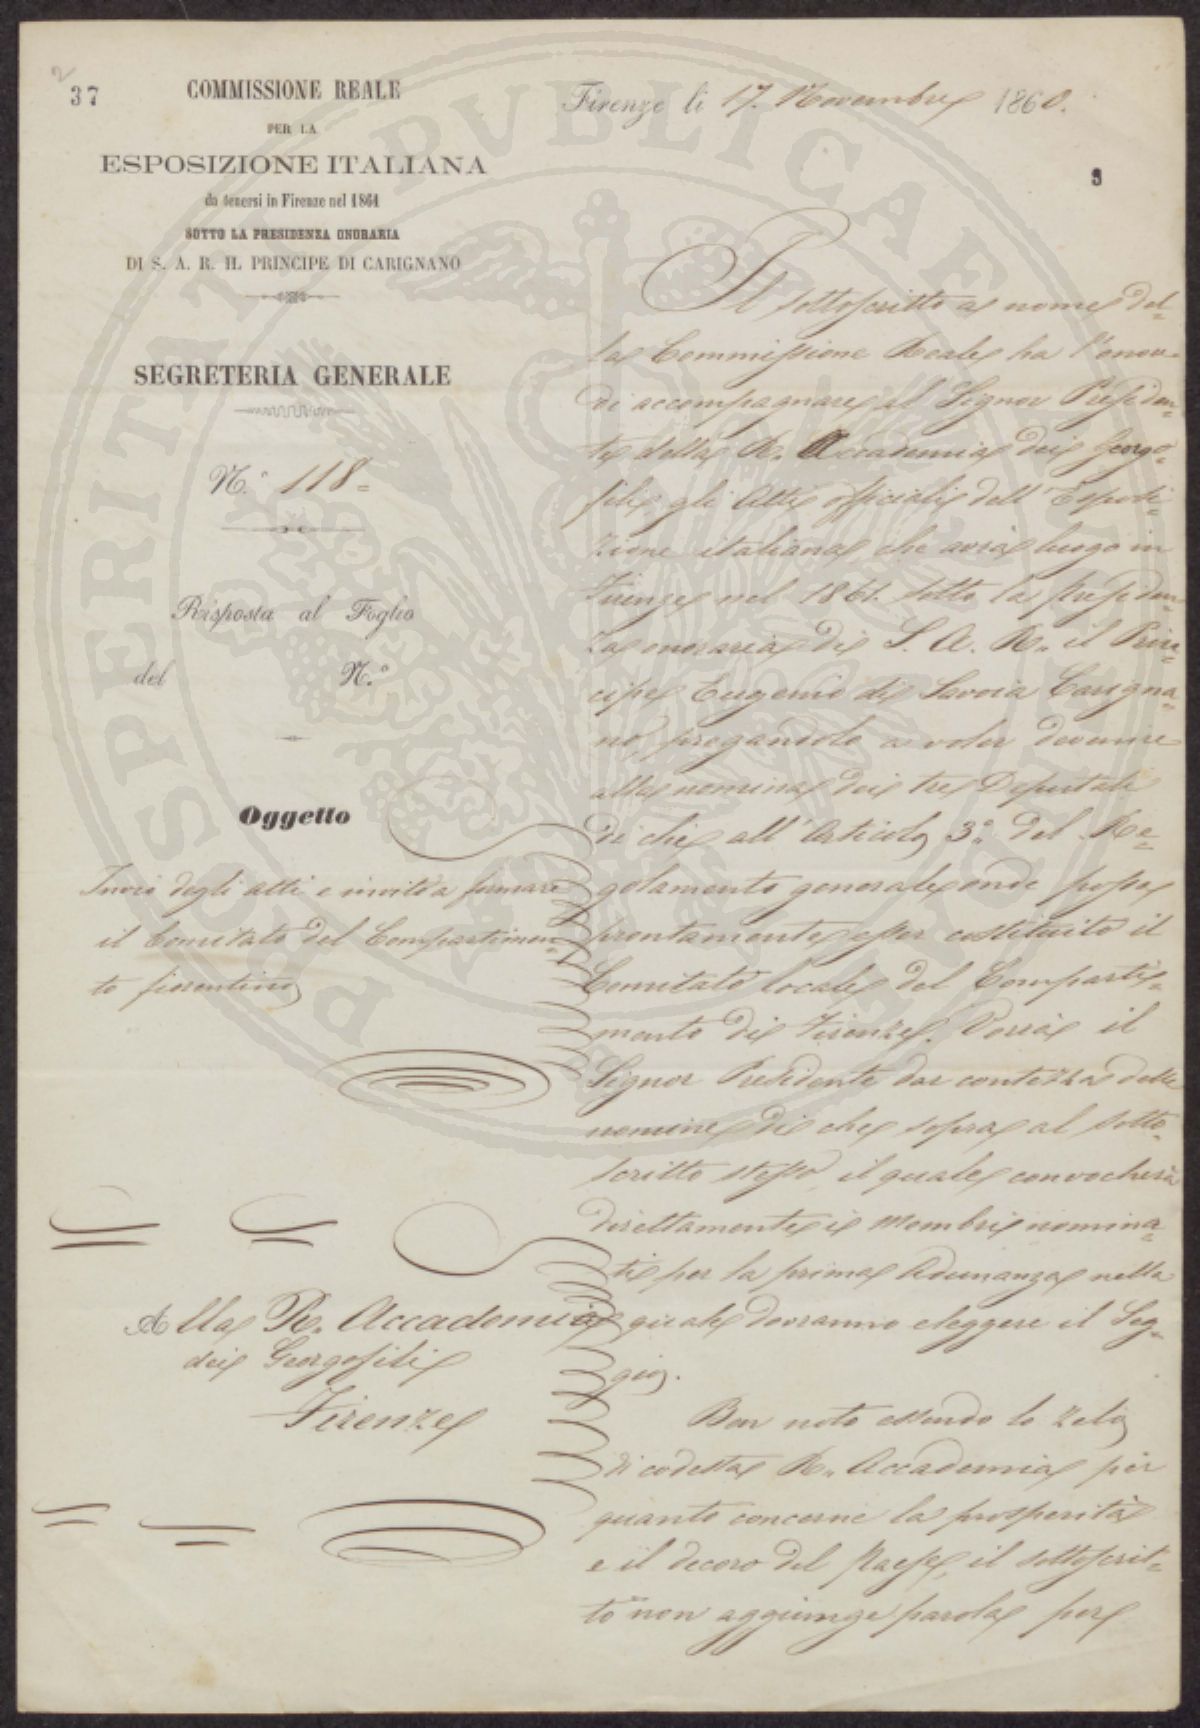 2
37
COMMISSIONE REALE
PER LA
ESPOSIZIONE ITALIANA
da tenersi in Firenze nel 1861
SOTTO LA PRESIDENZA ONORARIA
DI S. A. R. IL PRINCIPE DI CARIGNANO
SEGRETERIA GENERALE
N.° 118=
Risposta al Foglio
del N.°
Oggetto
Invio degli atti e invito a formare
il Comitato del Compartimen=
to fiorentino
Alla R. Accademia
dei Georgofili
Firenze
Firenze li 17. Novembre 1860.
9
Il sottoscritto a nome del=
la Commissione Reale ha l'onore
di accompagnare al Signor Presiden=
te della R. Accademia dei Georgo=
fili gli Atti officiali dell'Esposi=
zione italiana che avrà luogo in
Firenze nel 1861. sotto la Presiden
za onoraria di S. A. R. il Prin=
cipe Eugenio di Savoia Carigna=
no, pregandolo a voler devenire
alla nomina dei tre Deputati
di che all'Articolo 3.° del Re=
golamento generale onde possa
prontamente esser costituito il
Comitato locale del Comparti=
mento di Firenze. Vorrà il
Signor Presidente dar contezza delle
nomine di che sopra al sotto=
scritto stesso, il quale convocherà
direttamente i Membri nomina=
ti per la prima Adunanza nella
quale dovranno eleggere il Seg=
gio.
Ben noto essendo lo zelo
di codesta R. Accademia per
quanto concerne la prosperità
e il decoro del Paese, il sottoscrit=
to non aggiunge parola per
PROSPERITATI PVBLICAE AVGENDAE